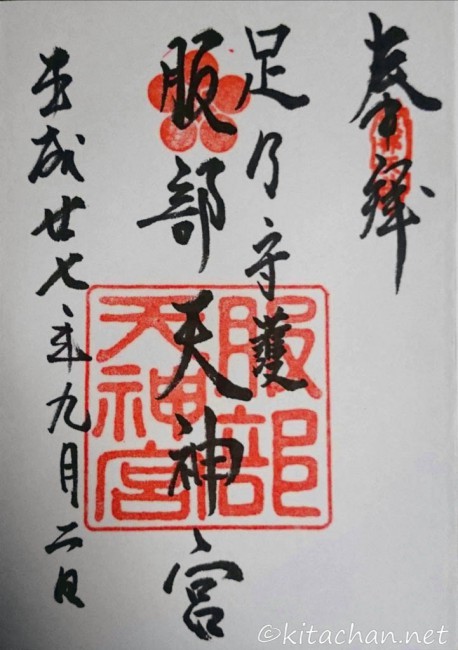 奉拝
足乃守護
服部天神宮
平成廿七年九月二日
服部
天神宮
©kitachan.net